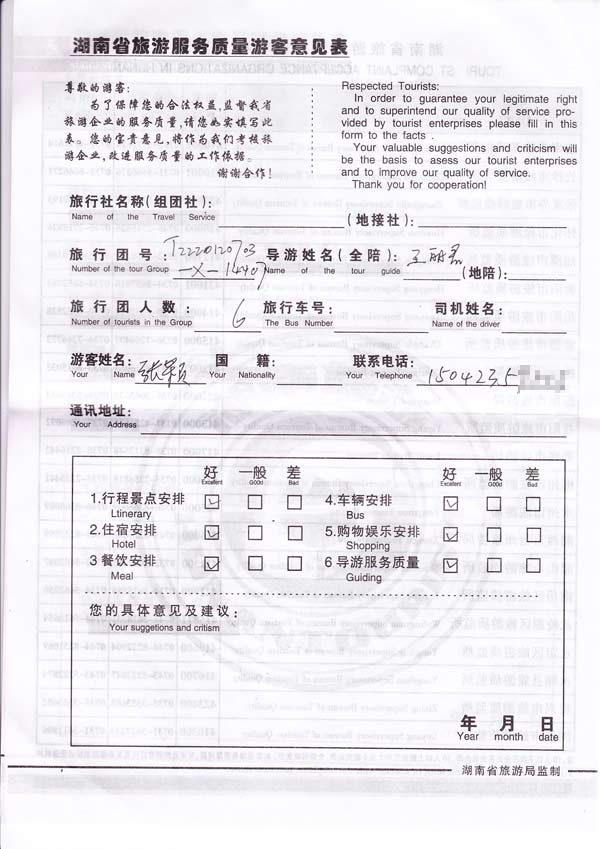 湖南省旅游服务质量游客意见表
尊敬的游客:
为了保障您的合法权益,监督我省
旅游企业的服务质量,请您如实填写此
表。您的宝贵意见,将作为我们考核旅
游企业,改进服务质量的工作依据。
谢谢合作!
Respected Tourists:
In order to guarantee your legitimate right
and to superintend our quality of service pro-
vided by tourist enterprises please fill in this
form to the facts .
Your valuable suggestions and criticism will
be the basis to asess our tourist enterprises
and to improve our quality of service.
Thank you for cooperation!
旅行社名称(组团社): (地接社):
Name of the Travel Service
旅行团号: T2220120703 导游姓名(全陪): (地陪):
Number of the tour Group Name of the tour guide
旅行团人数: 6 旅行车号: 司机姓名:
Number of tourists in the Group The Bus Number Name of the driver
游客姓名: 张颖 国籍: 联系电话: 150423.5
Your Name Your Nationality Your Telephone
通讯地址:
Your Address
好 一般 差 好 一般 差
Excellent G00d Bad Excellent G00d Bad
1.行程景点安排 4.车辆安排
Ltinerary Bus
2.住宿安排 5.购物娱乐安排
Hotel Shopping
3 餐饮安排 6 导游服务质量
Meal Guiding
您的具体意见及建议:
Your suggetions and critism
年 月 日
Year month date
湖南省旅游局监制